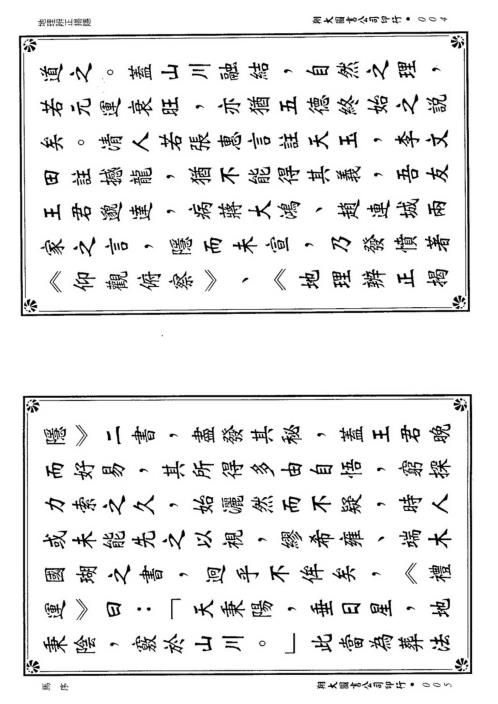 地理辨正揭隱
翔大圖書公司印行•004
道之。蓋山川融結,自然之理,
若元運衰旺,亦猶五德終始之説
矣。清人若張惠言註天玉,李文
田註撼龍,猶不能得其義,吾友
王君邈達,病蔣大鴻、趙連城兩
家之言,隱而未宣,乃發憤著
《仰觀俯察》、《地理辨正揭
隱》二書,盡發其秘,蓋王君晚
而好易,其所得多由自悟,窮探
力索之久,始灑然而不疑,時人
或未能先之以視,繆希雍、端木
國瑚之書,迥乎不侔矣,《禮
運》曰:「天秉陽,垂日星,地
秉陰,竅於山川。」此當為葬法
馬序
翔大圖書公司印行•005